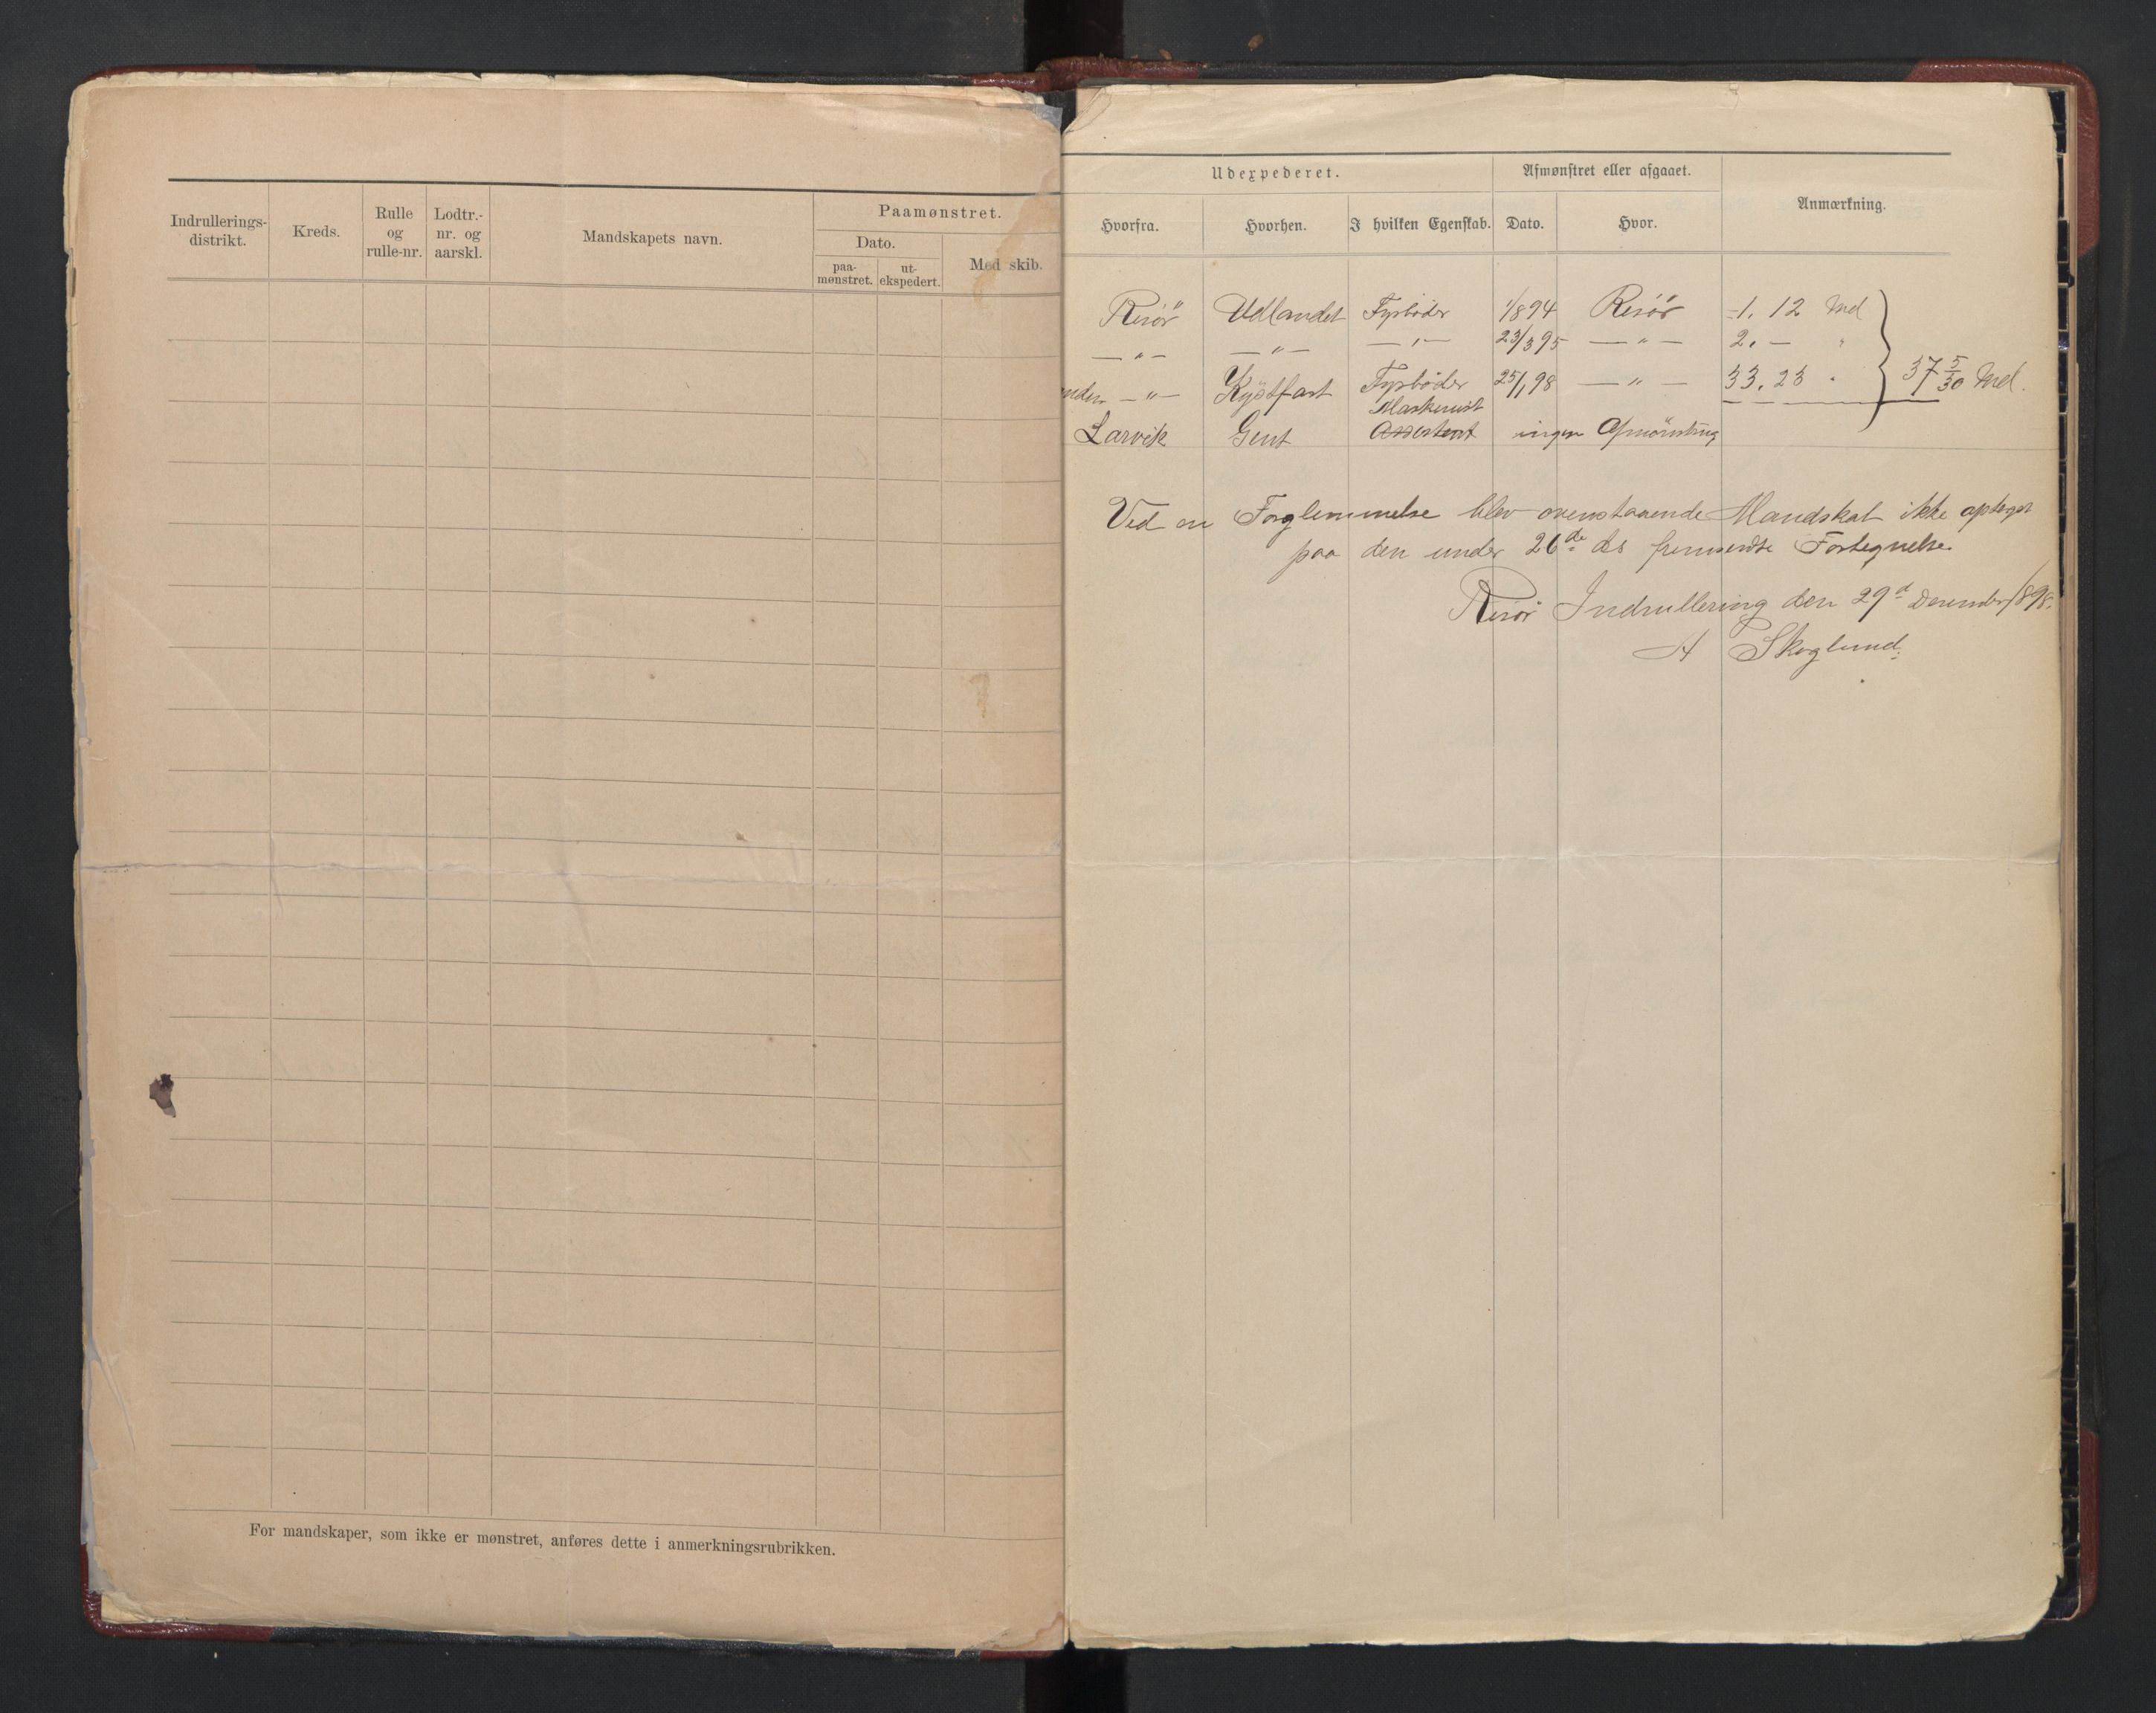 Indrullerings-
distrikt.
Kreds.
Rulle
og
rulle-nr.
Lodtr.-
nr. og
aarskl.
Mandskapets navn.
Paamønstret.
Dato.
paa-
mønstret.
ut-
ekspedert.
Med skib.
For mandskaper, som ikke er mønstret, anføres dette i anmerkningsrubrikken.
Udexpederet.
Afmønstret eller afgaaet.
Anmærkning.
Hvorfra.
Hvorhen.
I hvilken Egenskab.
Dato.
Hvor.
Risör Udlandet Fyrböder 1/8 94 Risör 1. 12 Md
— " — — " — — " — 23/3 95 — " — 2. — "
— " — Kystfart Fyrböder 25/1 98 — " — 33. 23 " 37 5/30 Md.
Maskinist
Larvik Gent Assistent ingen Afmönstring
Ved en Forglemmelse blev ovenstaaende Mandskab ikke optaget
paa den under 26de ds fremsendte Fortegnelse
Risör Indrullering den 29d December 1898.
A Skoglund.